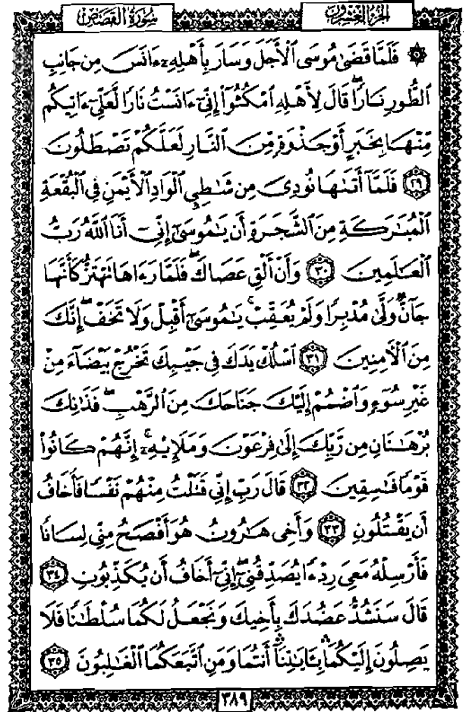 الجزء العشرون
سورة القصص
۞ فَلَمَّا قَضَىٰ مُوسَى ٱلْأَجَلَ وَسَارَ بِأَهْلِهِۦٓ ءَانَسَ مِن جَانِبِ
ٱلطُّورِ نَارًا قَالَ لِأَهْلِهِ ٱمْكُثُوٓا۟ إِنِّىٓ ءَانَسْتُ نَارًا لَّعَلِّىٓ ءَاتِيكُم
مِّنْهَا بِخَبَرٍ أَوْ جَذْوَةٍ مِّنَ ٱلنَّارِ لَعَلَّكُمْ تَصْطَلُونَ
۝٢٩ فَلَمَّآ أَتَىٰهَا نُودِىَ مِن شَـٰطِئِ ٱلْوَادِ ٱلْأَيْمَنِ فِى ٱلْبُقْعَةِ
ٱلْمُبَـٰرَكَةِ مِنَ ٱلشَّجَرَةِ أَن يَـٰمُوسَىٰٓ إِنِّىٓ أَنَا ٱللَّهُ رَبُّ
ٱلْعَـٰلَمِينَ ۝٣٠ وَأَنْ أَلْقِ عَصَاكَ ۖ فَلَمَّا رَءَاهَا تَهْتَزُّ كَأَنَّهَا
جَآنٌّ وَلَّىٰ مُدْبِرًا وَلَمْ يُعَقِّبْ ۚ يَـٰمُوسَىٰٓ أَقْبِلْ وَلَا تَخَفْ ۖ إِنَّكَ
مِنَ ٱلْـَٔامِنِينَ ۝٣١ ٱسْلُكْ يَدَكَ فِى جَيْبِكَ تَخْرُجْ بَيْضَآءَ مِنْ
غَيْرِ سُوٓءٍ وَٱضْمُمْ إِلَيْكَ جَنَاحَكَ مِنَ ٱلرَّهْبِ ۖ فَذَٰنِكَ
بُرْهَـٰنَانِ مِن رَّبِّكَ إِلَىٰ فِرْعَوْنَ وَمَلَإِي۟هِۦٓ ۚ إِنَّهُمْ كَانُوا۟
قَوْمًا فَـٰسِقِينَ ۝٣٢ قَالَ رَبِّ إِنِّى قَتَلْتُ مِنْهُمْ نَفْسًا فَأَخَافُ
أَن يَقْتُلُونِ ۝٣٣ وَأَخِى هَـٰرُونُ هُوَ أَفْصَحُ مِنِّى لِسَانًا
فَأَرْسِلْهُ مَعِىَ رِدْءًا يُصَدِّقُنِىٓ ۖ إِنِّىٓ أَخَافُ أَن يُكَذِّبُونِ ۝٣٤
قَالَ سَنَشُدُّ عَضُدَكَ بِأَخِيكَ وَنَجْعَلُ لَكُمَا سُلْطَـٰنًا فَلَا
يَصِلُونَ إِلَيْكُمَا ۚ بِـَٔايَـٰتِنَآ أَنتُمَا وَمَنِ ٱتَّبَعَكُمَا ٱلْغَـٰلِبُونَ ۝٣٥
٣٨٩